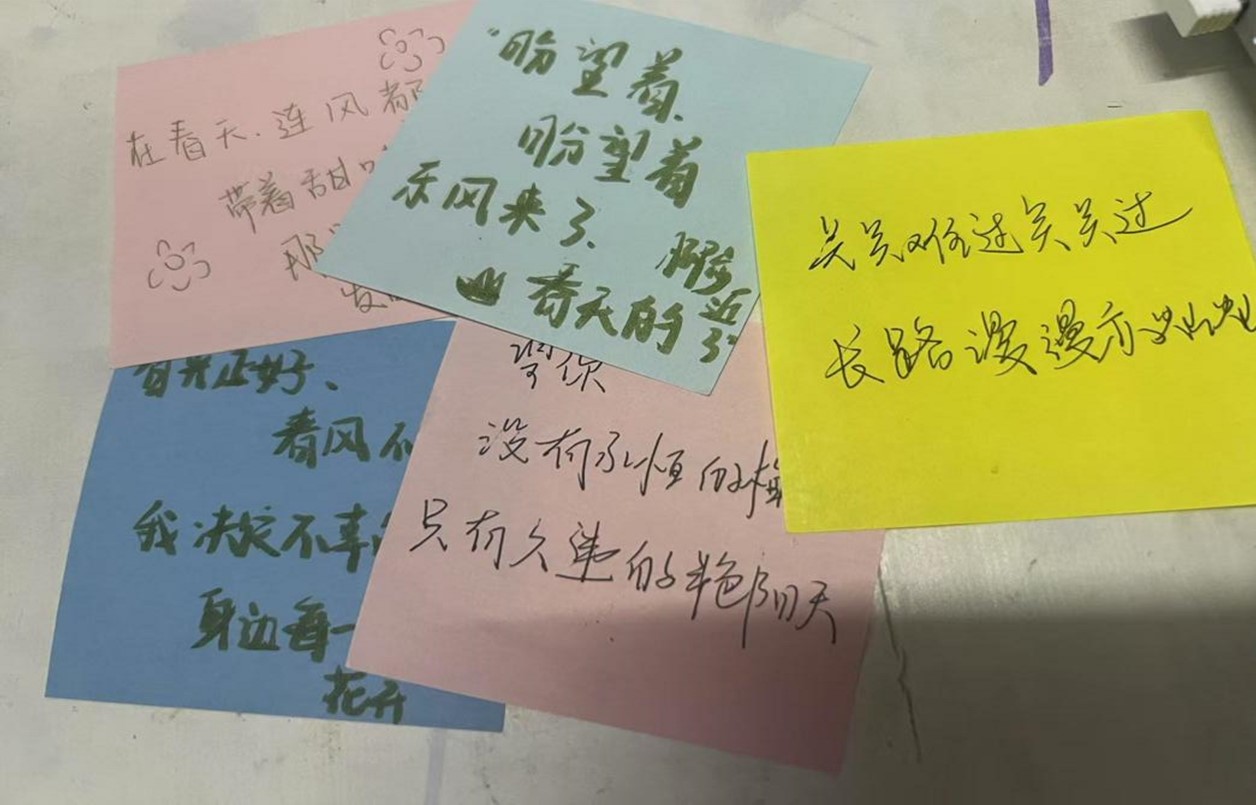 在春天.连风都
带着甜
那
发
“盼望着、
盼望着
东风来了、
春天的脚步近了”
关关难过关关过
长路漫漫亦
春光正好、
春风不
我决定不辜
身边每一
花开
没有永恒的
只有久违的艳阳天